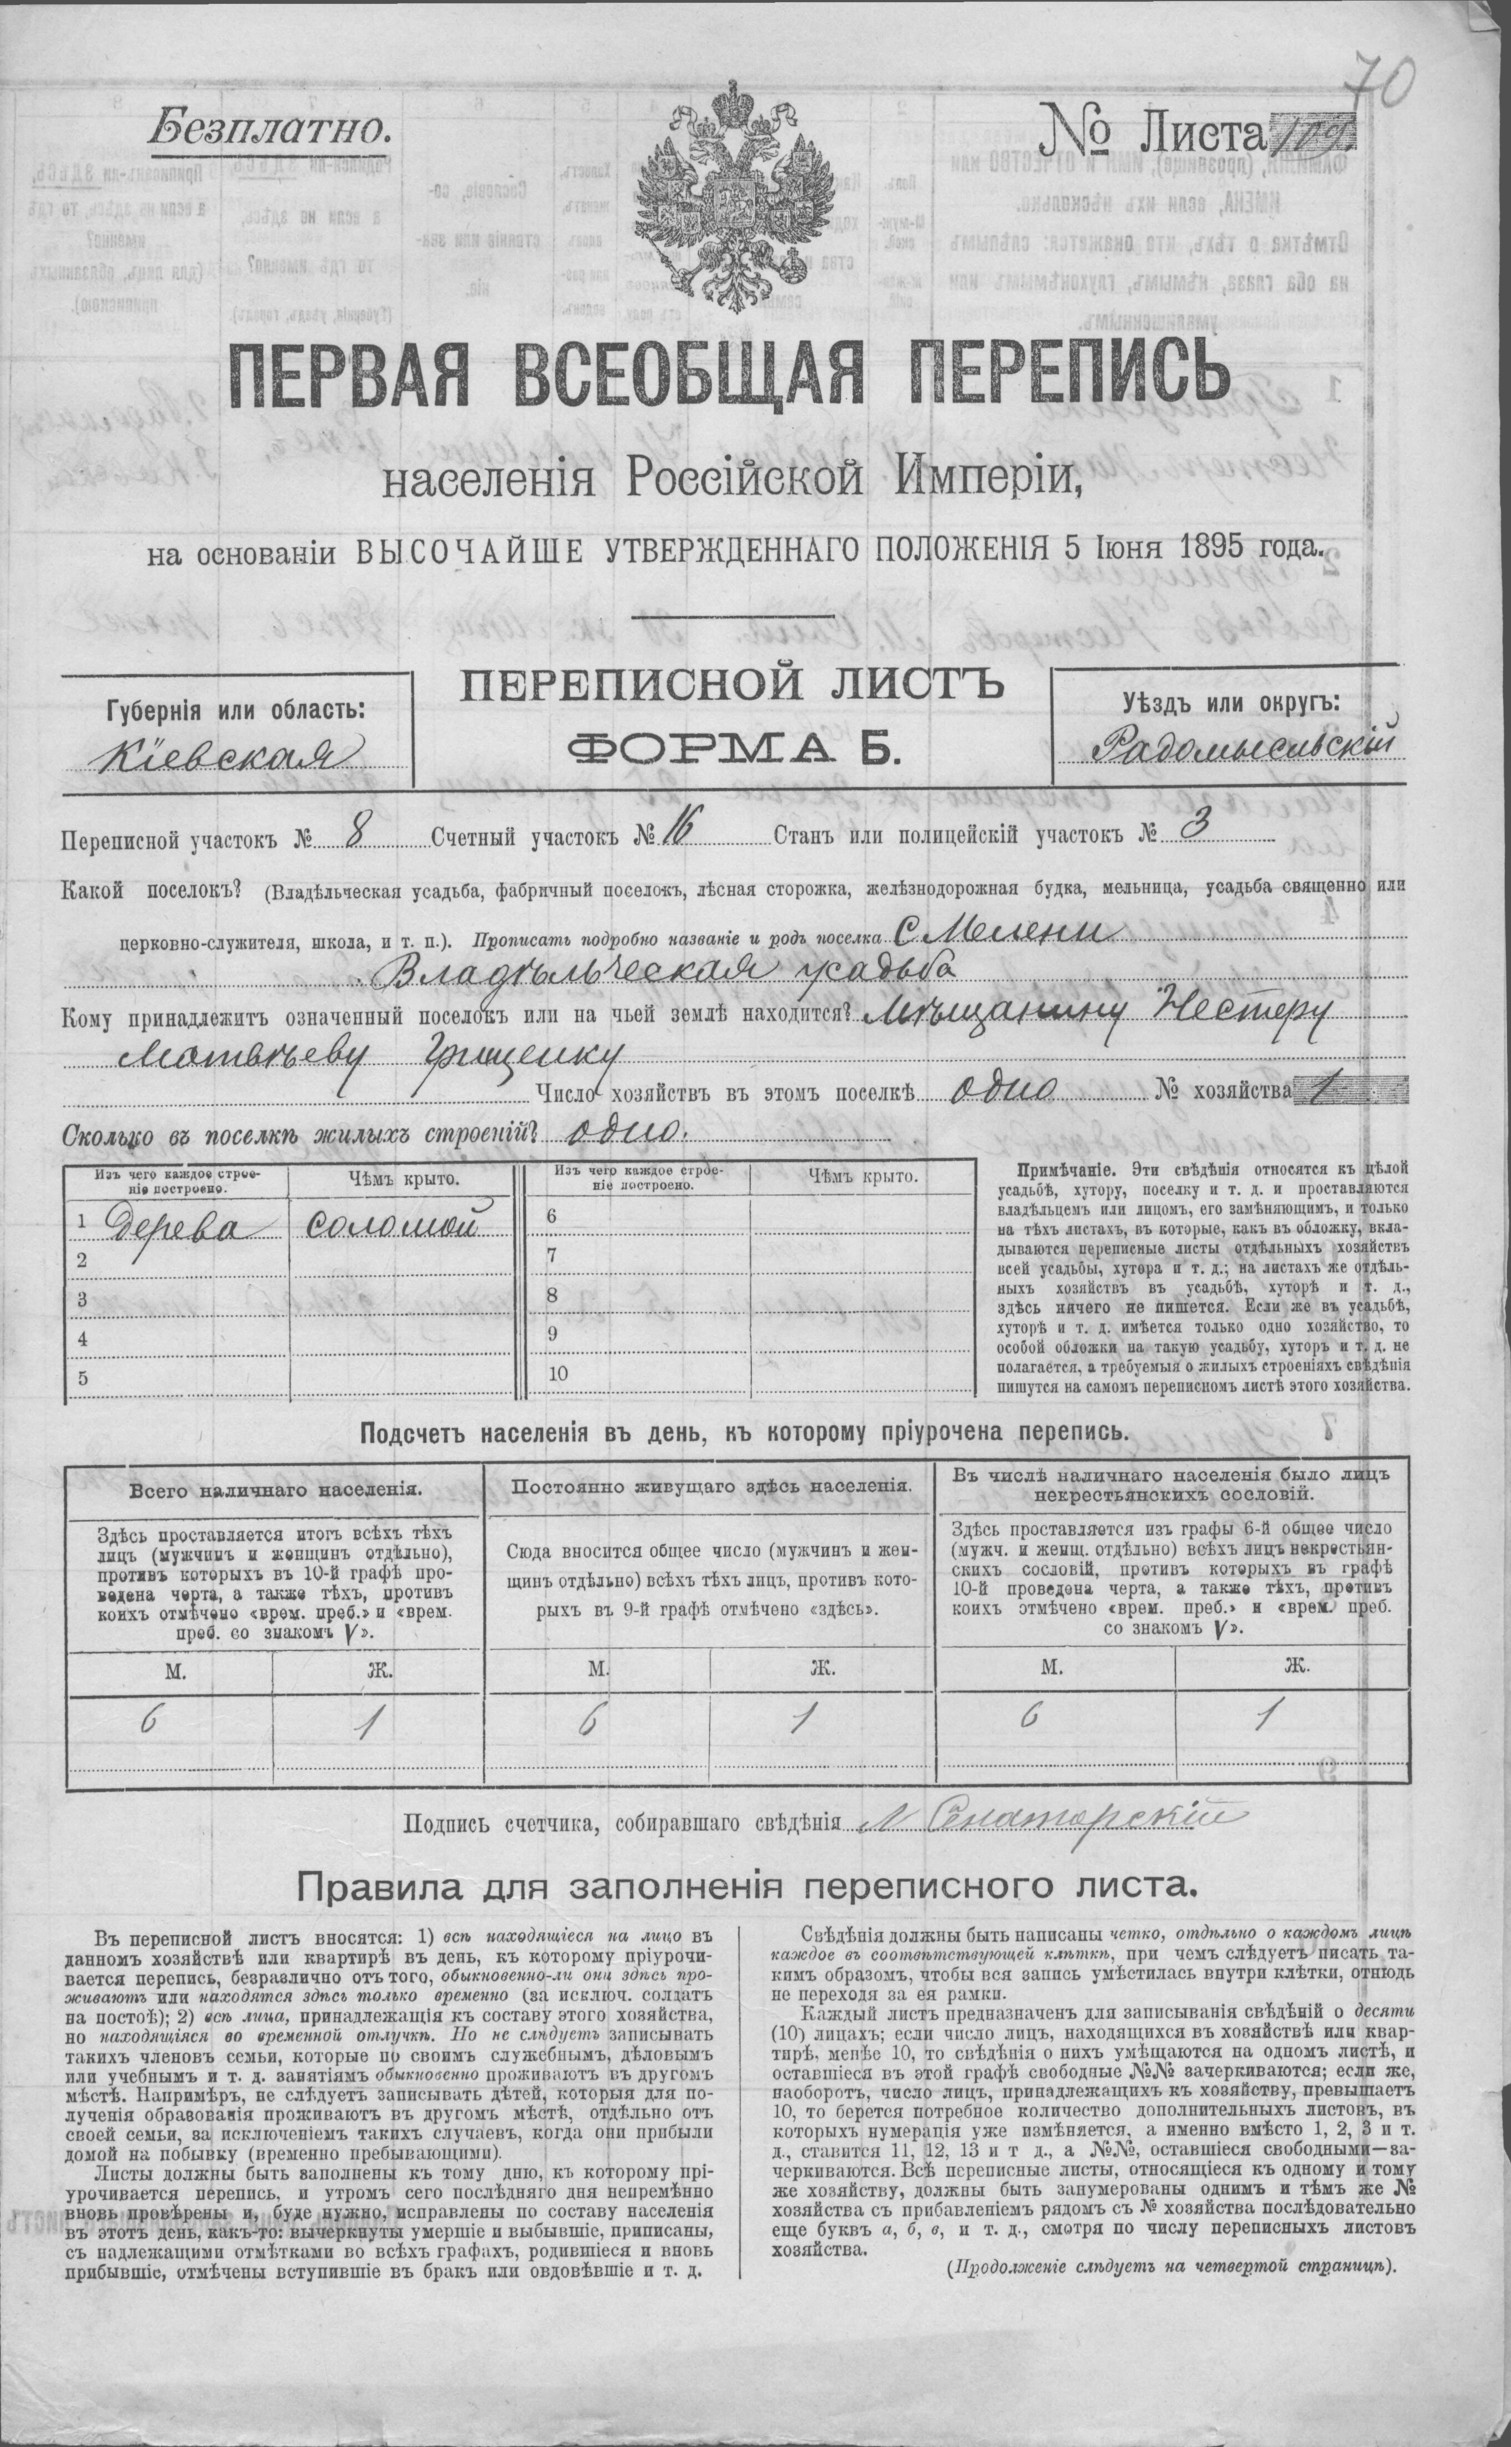 70
Безплатно.
№ Листа 109.
ПЕРВАЯ ВСЕОБЩАЯ ПЕРЕПИСЬ
населенія Россійской Имперіи,
на основаніи ВЫСОЧАЙШЕ УТВЕРЖДЕННАГО ПОЛОЖЕНІЯ 5 Іюня 1895 года.
ПЕРЕПИСНОЙ ЛИСТЪ
ФОРМА Б.
Губернія или область:
Кіевская
Уѣздъ или округъ:
Радомысльскій
Переписной участокъ № 8 Счетный участокъ № 16 Станъ или полицейскій участокъ № 3
Какой поселокъ? (Владѣльческая усадьба, фабричный поселокъ, лѣсная сторожка, желѣзнодорожная будка, мельница, усадьба священно или
церковно-служителя, школа, и т. п.). Прописать подробно названіе и родъ поселка с Мелени
Владѣльческая усадьба
Кому принадлежитъ означенный поселокъ или на чьей землѣ находится? Мѣщанину Нестеру
Матвѣеву Грищенку
Число хозяйствъ въ этомъ поселкѣ одно № хозяйства 1
Сколько въ поселкѣ жилыхъ строеній? одно.
Изъ чего каждое строе-
ніе построено.
Чѣмъ крыто.
Изъ чего каждое строе-
ніе построено.
Чѣмъ крыто.
1 Дерева соломой 6
2 7
3 8
4 9
5 10
Примѣчаніе. Эти свѣдѣнія относятся къ цѣлой
усадьбѣ, хутору, поселку и т. д. и проставляются
владѣльцемъ или лицомъ, его замѣняющимъ, и только
на тѣхъ листахъ, въ которые, какъ въ обложку, вкла-
дываются переписные листы отдѣльныхъ хозяйствъ
всей усадьбы, хутора и т. д.; на листахъ же отдѣль-
ныхъ хозяйствъ въ усадьбѣ, хуторѣ и т. д.,
здѣсь ничего не пишется. Если же въ усадьбѣ,
хуторѣ и т. д. имѣется только одно хозяйство, то
особой обложки на такую усадьбу, хуторъ и т. д. не
полагается, а требуемыя о жилыхъ строеніяхъ свѣдѣнія
пишутся на самомъ переписномъ листѣ этого хозяйства.
Подсчетъ населенія въ день, къ которому пріурочена перепись.
Всего наличнаго населенія.
Здѣсь проставляется итогъ всѣхъ тѣхъ
лицъ (мужчинъ и женщинъ отдѣльно),
противъ которыхъ въ 10-й графѣ про-
ведена черта, а также тѣхъ, противъ
коихъ отмѣчено «врем. преб.» и «врем.
преб. со знакомъ V».
М. Ж.
6 1
Постоянно живущаго здѣсь населенія.
Сюда вносится общее число (мужчинъ и жен-
щинъ отдѣльно) всѣхъ тѣхъ лицъ, противъ кото-
рыхъ въ 9-й графѣ отмѣчено «здѣсь».
М. Ж.
6 1
Въ числѣ наличнаго населенія было лицъ
некрестьянскихъ сословій.
Здѣсь проставляется изъ графы 6-й общее число
(мужч. и женщ. отдѣльно) всѣхъ лицъ некрестьян-
скихъ сословій, противъ которыхъ въ графѣ
10-й проведена черта, а также тѣхъ, противъ
коихъ отмѣчено «врем. преб.» и «врем. преб.
со знакомъ V».
М. Ж.
6 1
Подпись счетчика, собиравшаго свѣдѣнія Сенаторскій
Правила для заполненія переписного листа.
Въ переписной листъ вносятся: 1) всѣ находящіеся на лицо въ
данномъ хозяйствѣ или квартирѣ въ день, къ которому пріурочи-
вается перепись, безразлично отъ того, обыкновенно-ли они здѣсь про-
живаютъ или находятся здѣсь только временно (за исключ. солдатъ
на постоѣ); 2) всѣ лица, принадлежащія къ составу этого хозяйства,
но находящіяся во временной отлучкѣ. Но не слѣдуетъ записывать
такихъ членовъ семьи, которые по своимъ служебнымъ, дѣловымъ
или учебнымъ и т. д. занятіямъ обыкновенно проживаютъ въ другомъ
мѣстѣ. Напримѣръ, не слѣдуетъ записывать дѣтей, которыя для по-
лученія образованія проживаютъ въ другомъ мѣстѣ, отдѣльно отъ
своей семьи, за исключеніемъ такихъ случаевъ, когда они прибыли
домой на побывку (временно пребывающими).
Листы должны быть заполнены къ тому дню, къ которому прі-
урочивается перепись, и утромъ сего послѣдняго дня непремѣнно
вновь провѣрены и, буде нужно, исправлены по составу населенія
въ этотъ день, какъ-то: вычеркнуты умершіе и выбывшіе, приписаны,
съ надлежащими отмѣтками во всѣхъ графахъ, родившіеся и вновь
прибывшіе, отмѣчены вступившіе въ бракъ или овдовѣвшіе и т. д.
Свѣдѣнія должны быть написаны четко, отдѣльно о каждомъ лицѣ
каждое въ соотвѣтствующей клѣткѣ, при чемъ слѣдуетъ писать та-
кимъ образомъ, чтобы вся запись умѣстилась внутри клѣтки, отнюдь
не переходя за ея рамки.
Каждый листъ предназначенъ для записыванія свѣдѣній о десяти
(10) лицахъ; если число лицъ, находящихся въ хозяйствѣ или квар-
тирѣ, менѣе 10, то свѣдѣнія о нихъ умѣщаются на одномъ листѣ, и
оставшіеся въ этой графѣ свободные №№ зачеркиваются; если же,
наоборотъ, число лицъ, принадлежащихъ къ хозяйству, превышаетъ
10, то берется потребное количество дополнительныхъ листовъ, въ
которыхъ нумерація уже измѣняется, а именно вмѣсто 1, 2, 3 и т.
д., ставится 11, 12, 13 и т д., а №№, оставшіеся свободными—за-
черкиваются. Всѣ переписные листы, относящіеся къ одному и тому
же хозяйству, должны быть занумерованы однимъ и тѣмъ же №
хозяйства съ прибавленіемъ рядомъ съ № хозяйства послѣдовательно
еще буквъ а, б, в, и т. д., смотря по числу переписныхъ листовъ
хозяйства.
(Продолженіе слѣдуетъ на четвертой страницѣ).